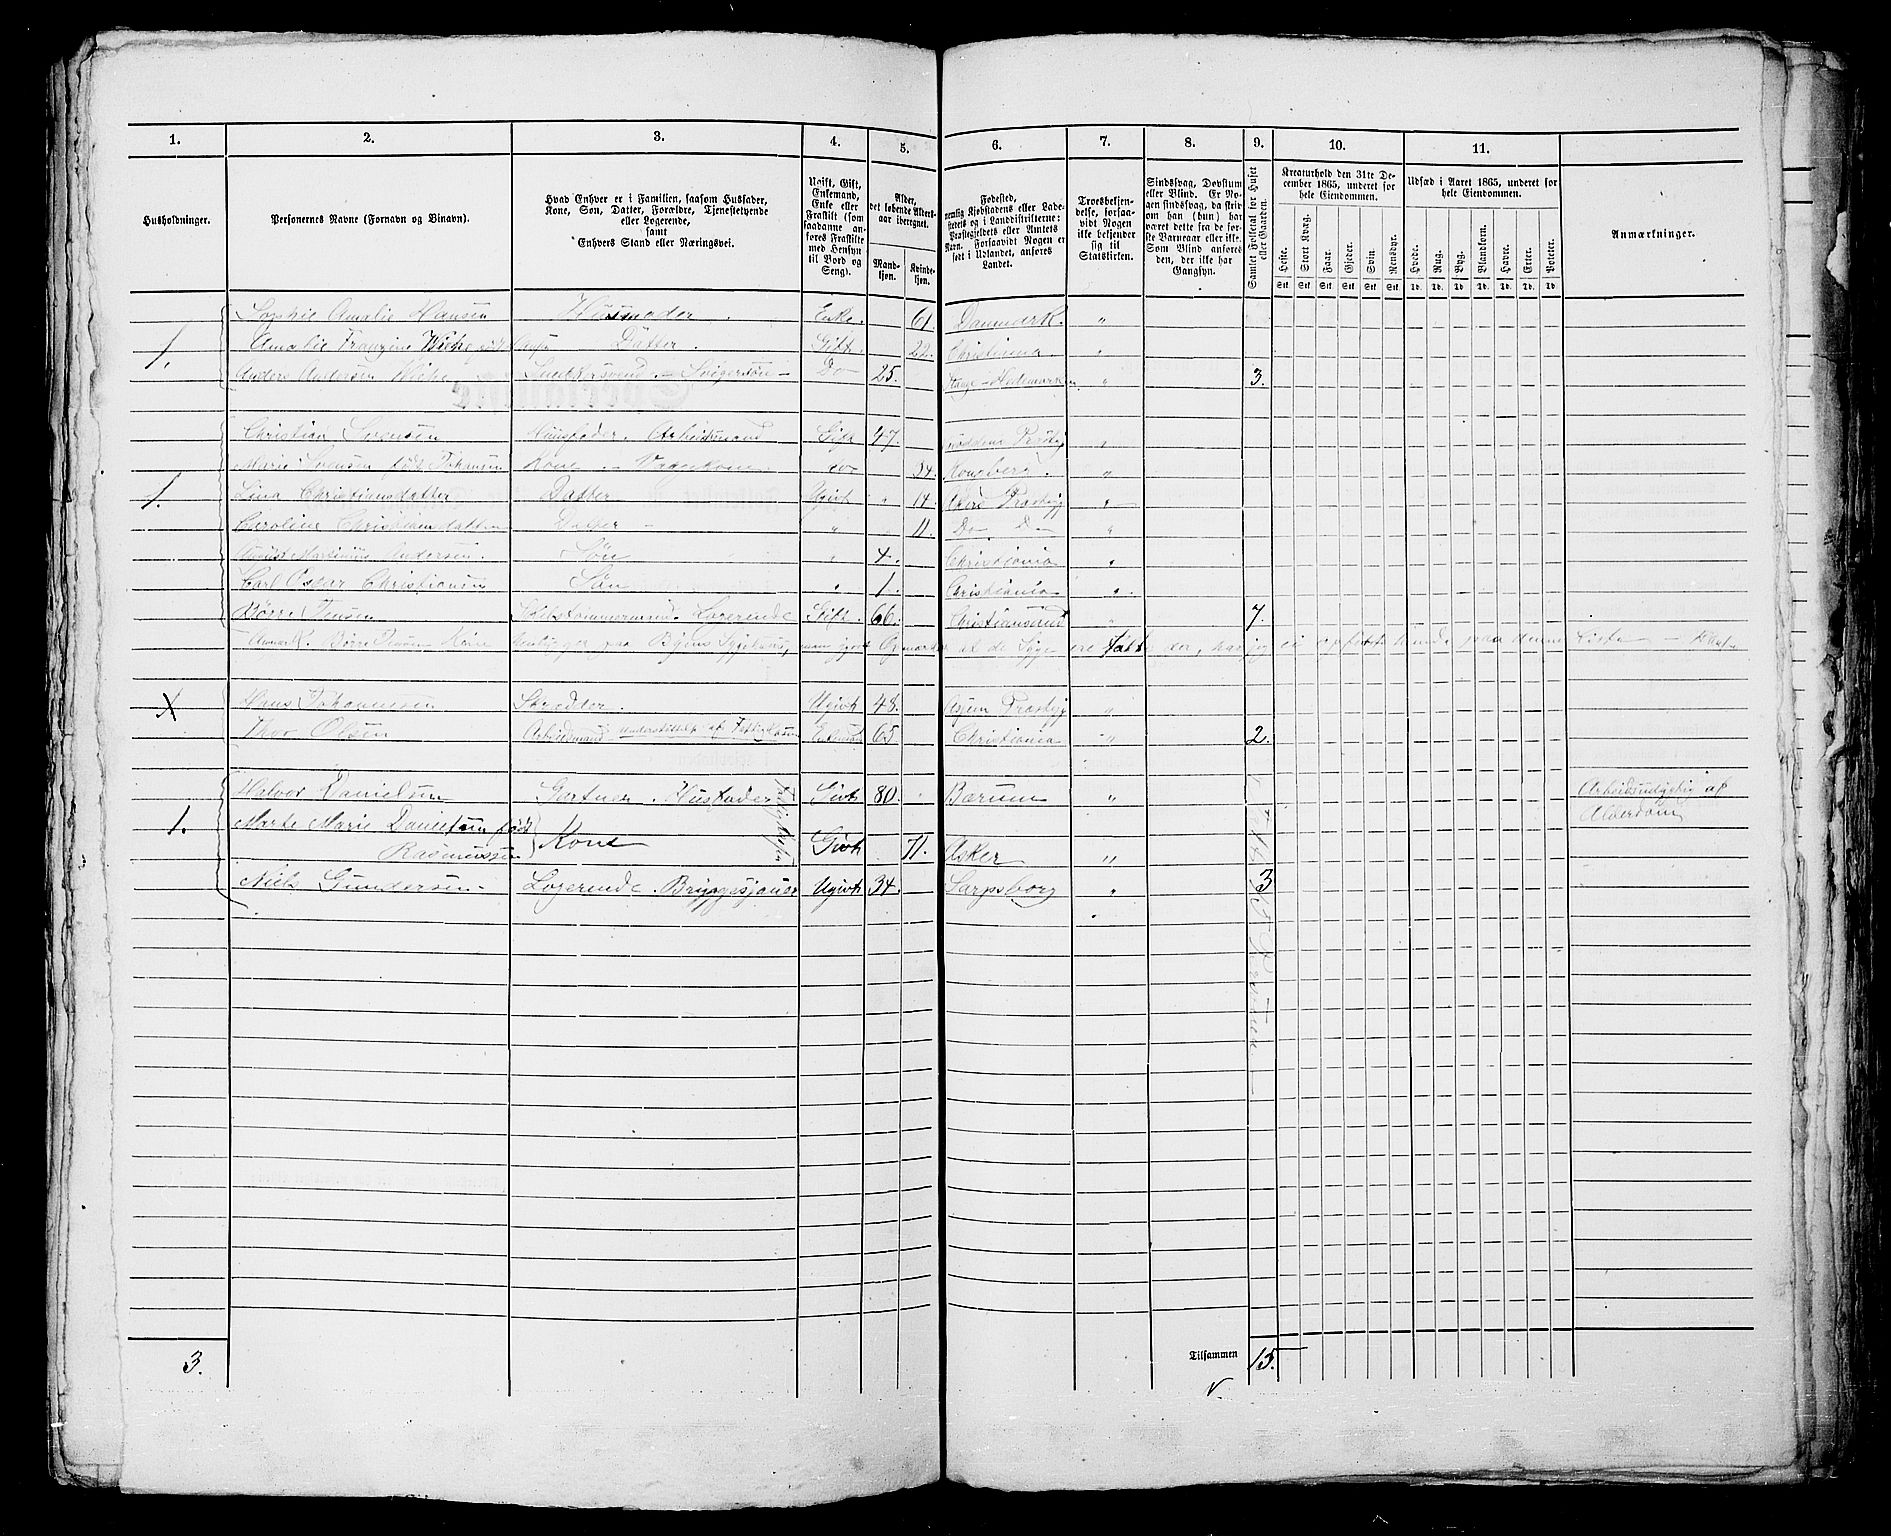 1. 2. 3. 4. 5. 6. 7. 8. 9. 10. 11.
Husholdninger.
Personernes Navne (Fornavn og Binavn).
Hvad Enhver er i Familien, saasom Husfader,
Kone, Søn, Datter, Forældre, Tjenestetyende
eller Logerende,
samt
Enhvers Stand eller Næringsvei.
Ugift, Gift,
Enkemand,
Enke eller
Fraskilt (som
saadanne an-
føres Fraskilte
med Hensyn
til Bord og
Seng).
Alder,
det løbende Alders-
aar iberegnet.
Mand-
kjøn.
Kvinde-
kjøn.
Fødested,
nemlig Kjøbstadens eller Lade-
stedets og i Landdistrikterne:
Præstegjeldets eller Amtets
Navn. Forsaavidt Nogen er
født i Udlandet, anføres
Landet.
Troesbekjen-
delse, forsaa-
vidt Nogen
ikke bekjender
sig til
Statskirken.
Sindssvag, Døvstum
eller Blind. Er No-
gen sindssvag, da skriv
om han (hun) har
været dette fra de før-
ste Barneaar eller ikke.
Som Blind anføres
den, der ikke har
Gangsyn.
Samlet Folketal for Huset
eller Gaarden.
Kreaturhold den 31te De-
cember 1865, underet for
hele Eiendommen.
Heste. Stort Kvæg. Faar. Gjeder. Svin. Rensdyr.
Stk. Stk. Stk. Stk. Stk. Stk.
Udsæd i Aaret 1865, underet for
hele Eiendommen.
Hvede. Rug. Byg. Blandkorn. Havre. Erter. Poteter.
Td. Td. Td. Td. Td. Td. Td.
Anmærkninger.
Sophie Amalie Hansen Husmoder. Enke. 61. Danmark. "
1. Amalie Franzine Wiche født Datter. Gift. 22. Christiania. "
Anders Andersen Wiche Snedkersvend. - Svigersøn - Do 25. Stange - Hedemarken " 3.
Christian Sorensen Huusfader. Arbeidsmand Gift 47. "
Marie Sorensen født Johansen Kone - do 34. Kongsberg. "
1. Lina Christiansdatter Datter Ugivt " 14. Akers Præstegj "
Caroline Christiansdatter Datter - " 11. Do Do "
August Martinius Andersen. Søn " 4. Christiania "
Carl Oscar Christiansen Søn " 1. Christiania "
Børre Jensen Logerende Gift. 66. Christianssund " 7.
Børre Jensen Kone paa Byens Sygehuus, de Syge der, har jeg ei opført hende paa denne Liste -
X Hans Johannesen Skrædder. Ugivt 48. Præstegj "
Thor Olsen Arbeidsmand - understøttet af Enkemand 65. Christiania " 2.
Halvor Danielsen Gartner. Husfader Givt 80. " Bærum " Arbeidsudygtig af
Alderdom
1. Marte Marie Danielsen født
Rasmussen Kone Givt 71. Asker "
Niels Gundersen. Logerende. Bryggesjouer Ugivt 34. Sarpsborg " 3
3. Tilsammen 15.